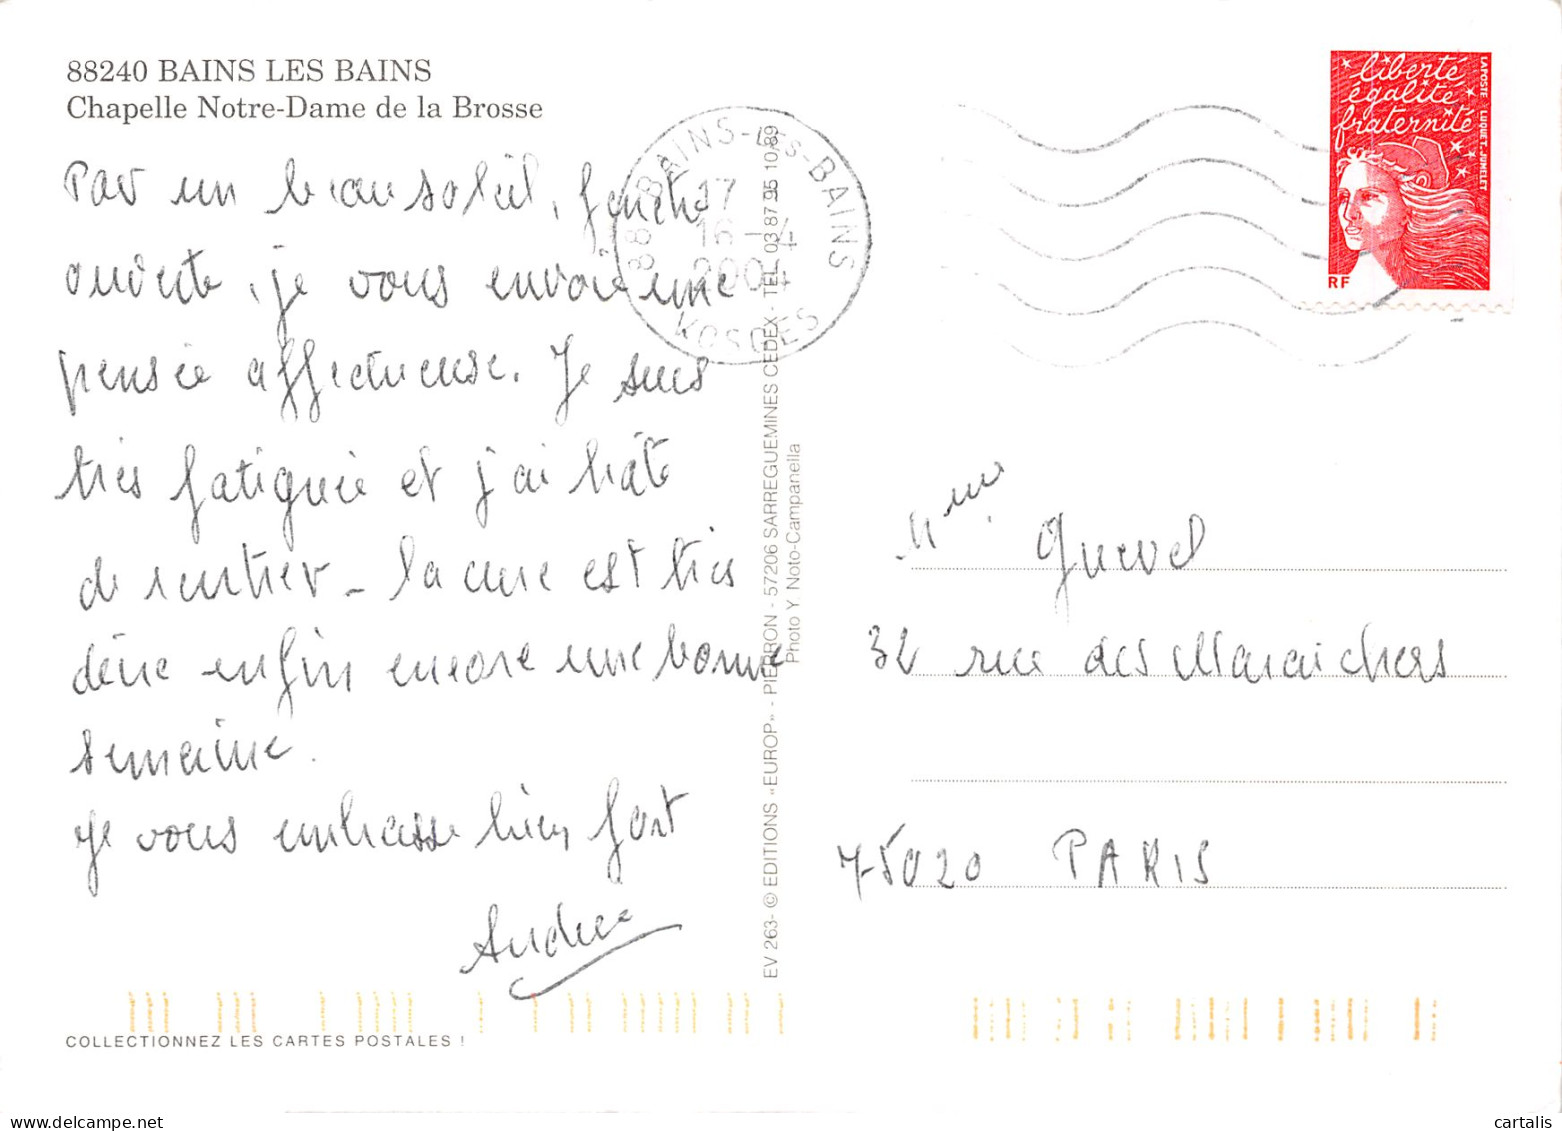 88240 BAINS LES BAINS
Chapelle Notre-Dame de la Brosse
Par un beau soleil, fenêtre
ouverte, je vous envoie une
pensée affectueuse. Je suis
très fatiguée et j'ai hâte
de rentrer - la cure est très
dure enfin encore une bonne
semaine.
Je vous embrasse bien fort
Andrée
COLLECTIONNEZ LES CARTES POSTALES !
EV 263- © EDITIONS «EUROP» - PIERRON - 57206 SARREGUEMINES CEDEX - TEL. 03 87 95 10 89
Photo Y. Noto-Campanella
88 BAINS-LES-BAINS
17
16-4
2004
VOSGES
liberté
égalité
fraternité
RF
LA POSTE LUQUET-JUMELET
Mme Quevel
32 rue des Maraichers
75020 PARIS
cartalis